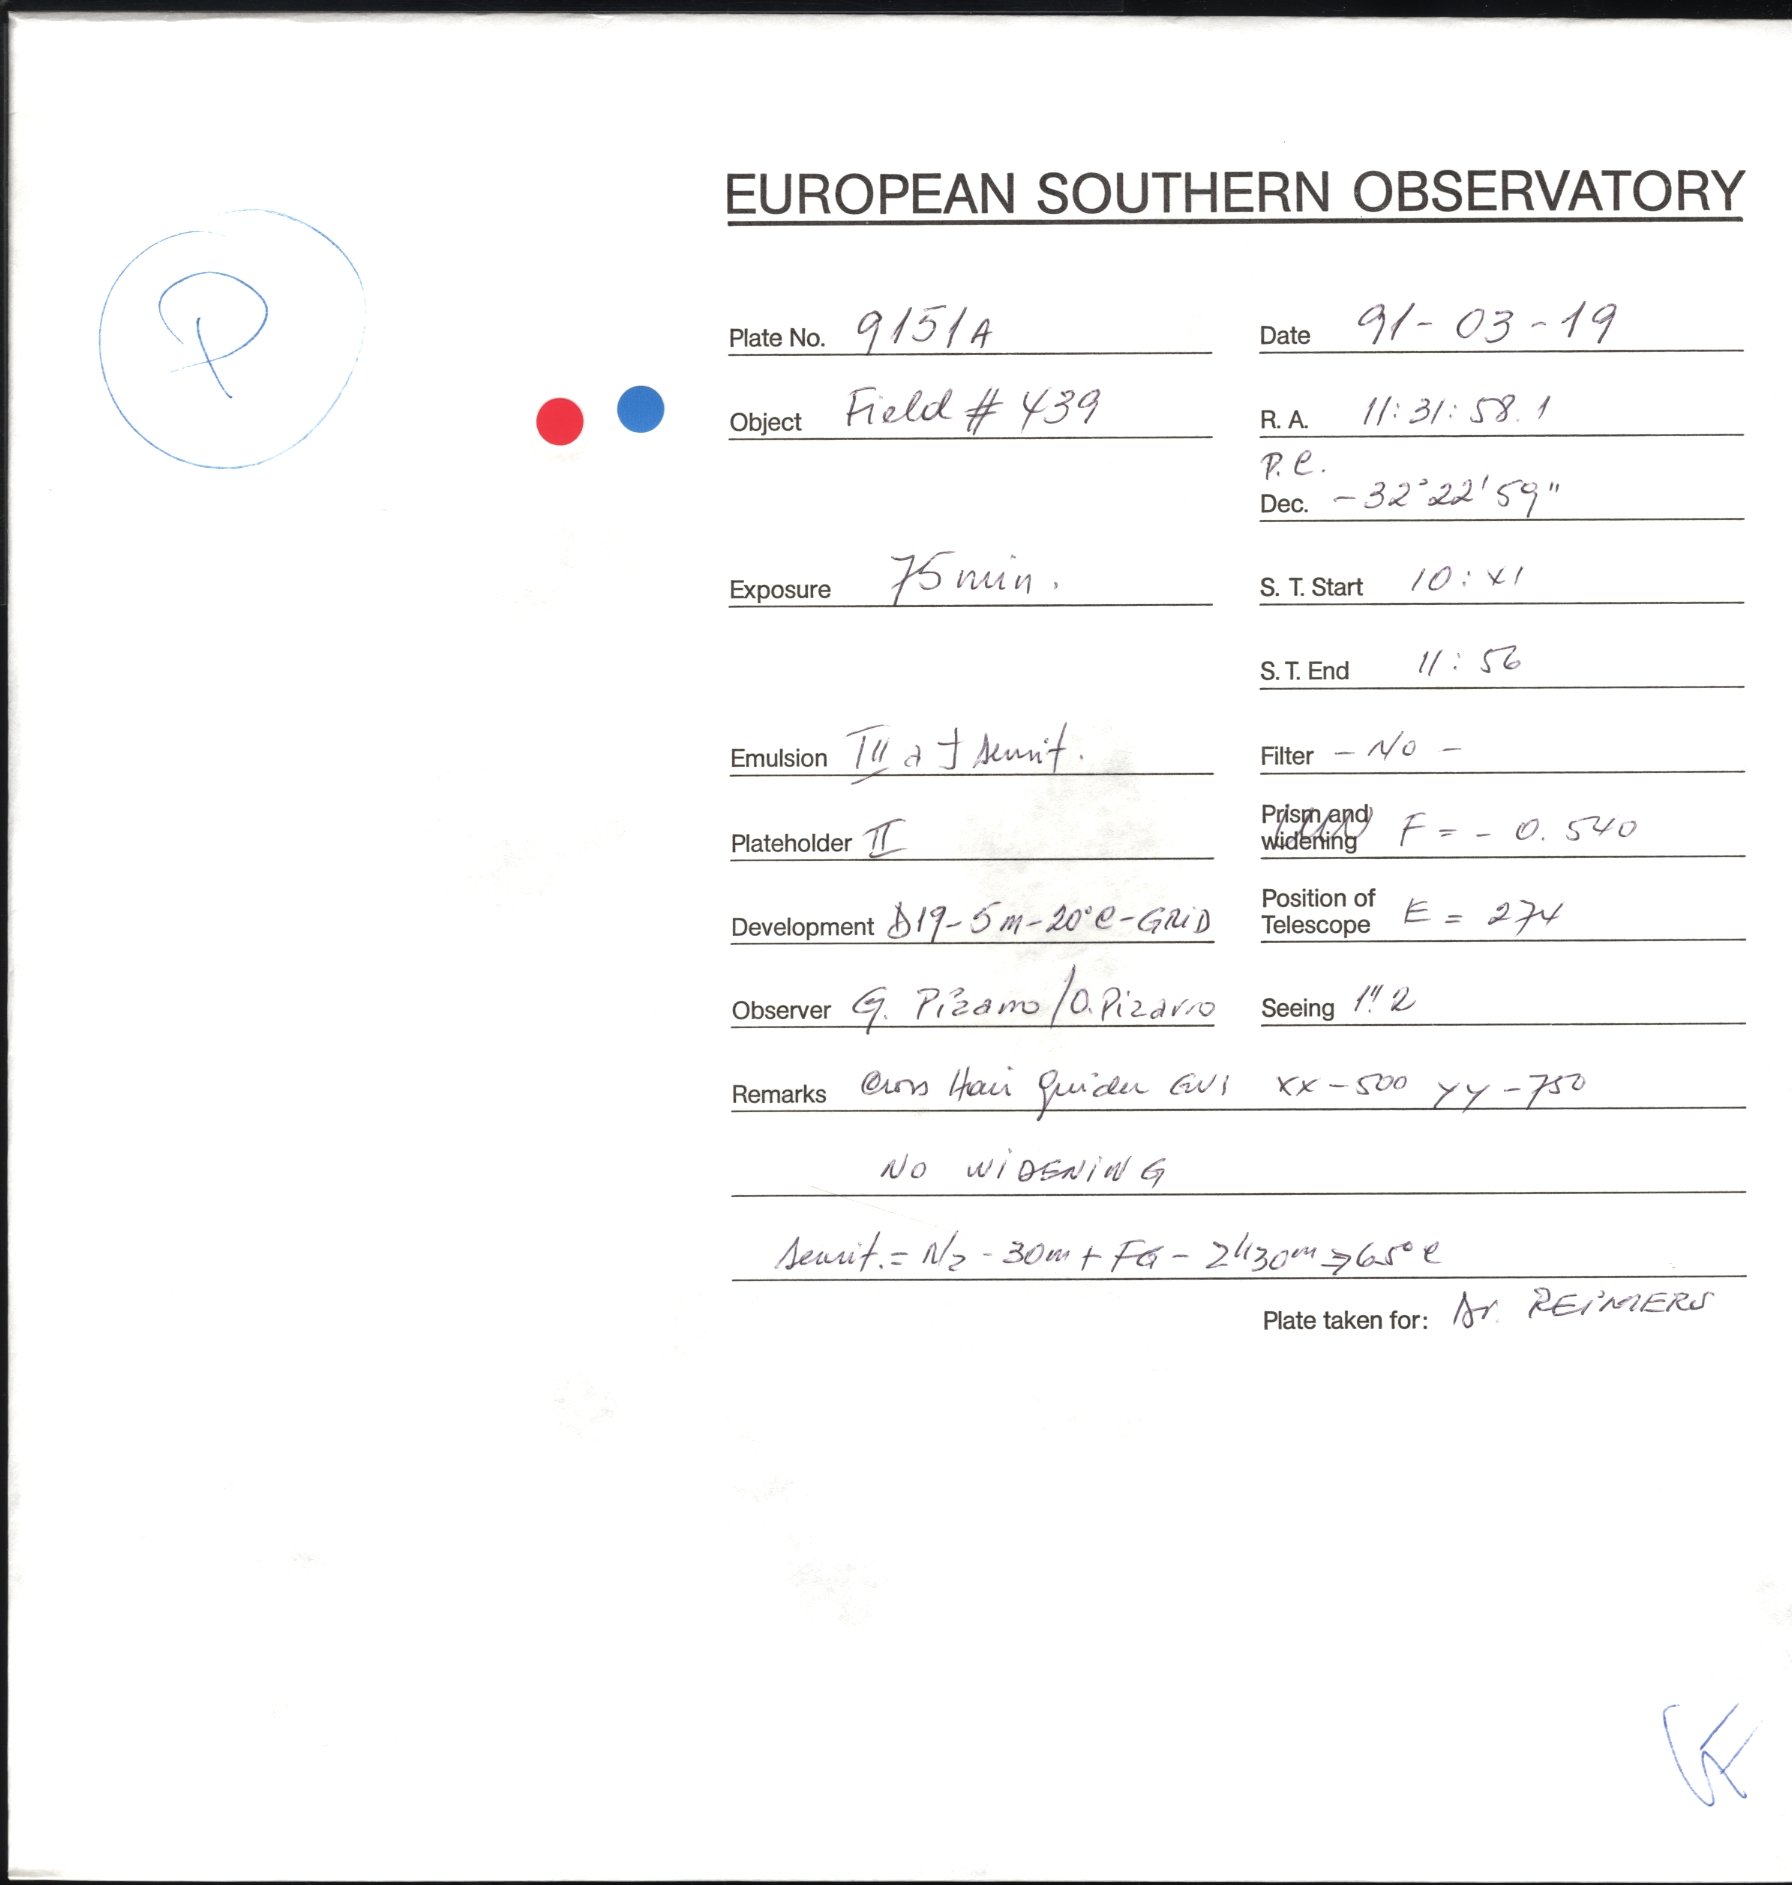 EUROPEAN SOUTHERN OBSERVATORY
P
Plate No. 9151A
Date 91-03-19
Object Field # 439
R. A. 11:31:58.1
P.C.
Dec. -32°22'59"
Exposure 75 min.
S. T. Start 10:41
S. T. End 11:56
Emulsion III a J sensit.
Filter - No -
Prism and widening F = - 0.540
Plateholder II
Development D19-5m-20°C-GRID
Position of Telescope E = 274
Observer G. Pizarro/O. Pizarro
Seeing 1".2
Remarks Cross Hair guider xx-500 yy-750
NO WIDENING
Sensit. = N2 - 30m + FG - 2h30m 65°C
Plate taken for: Dr. REIMERS